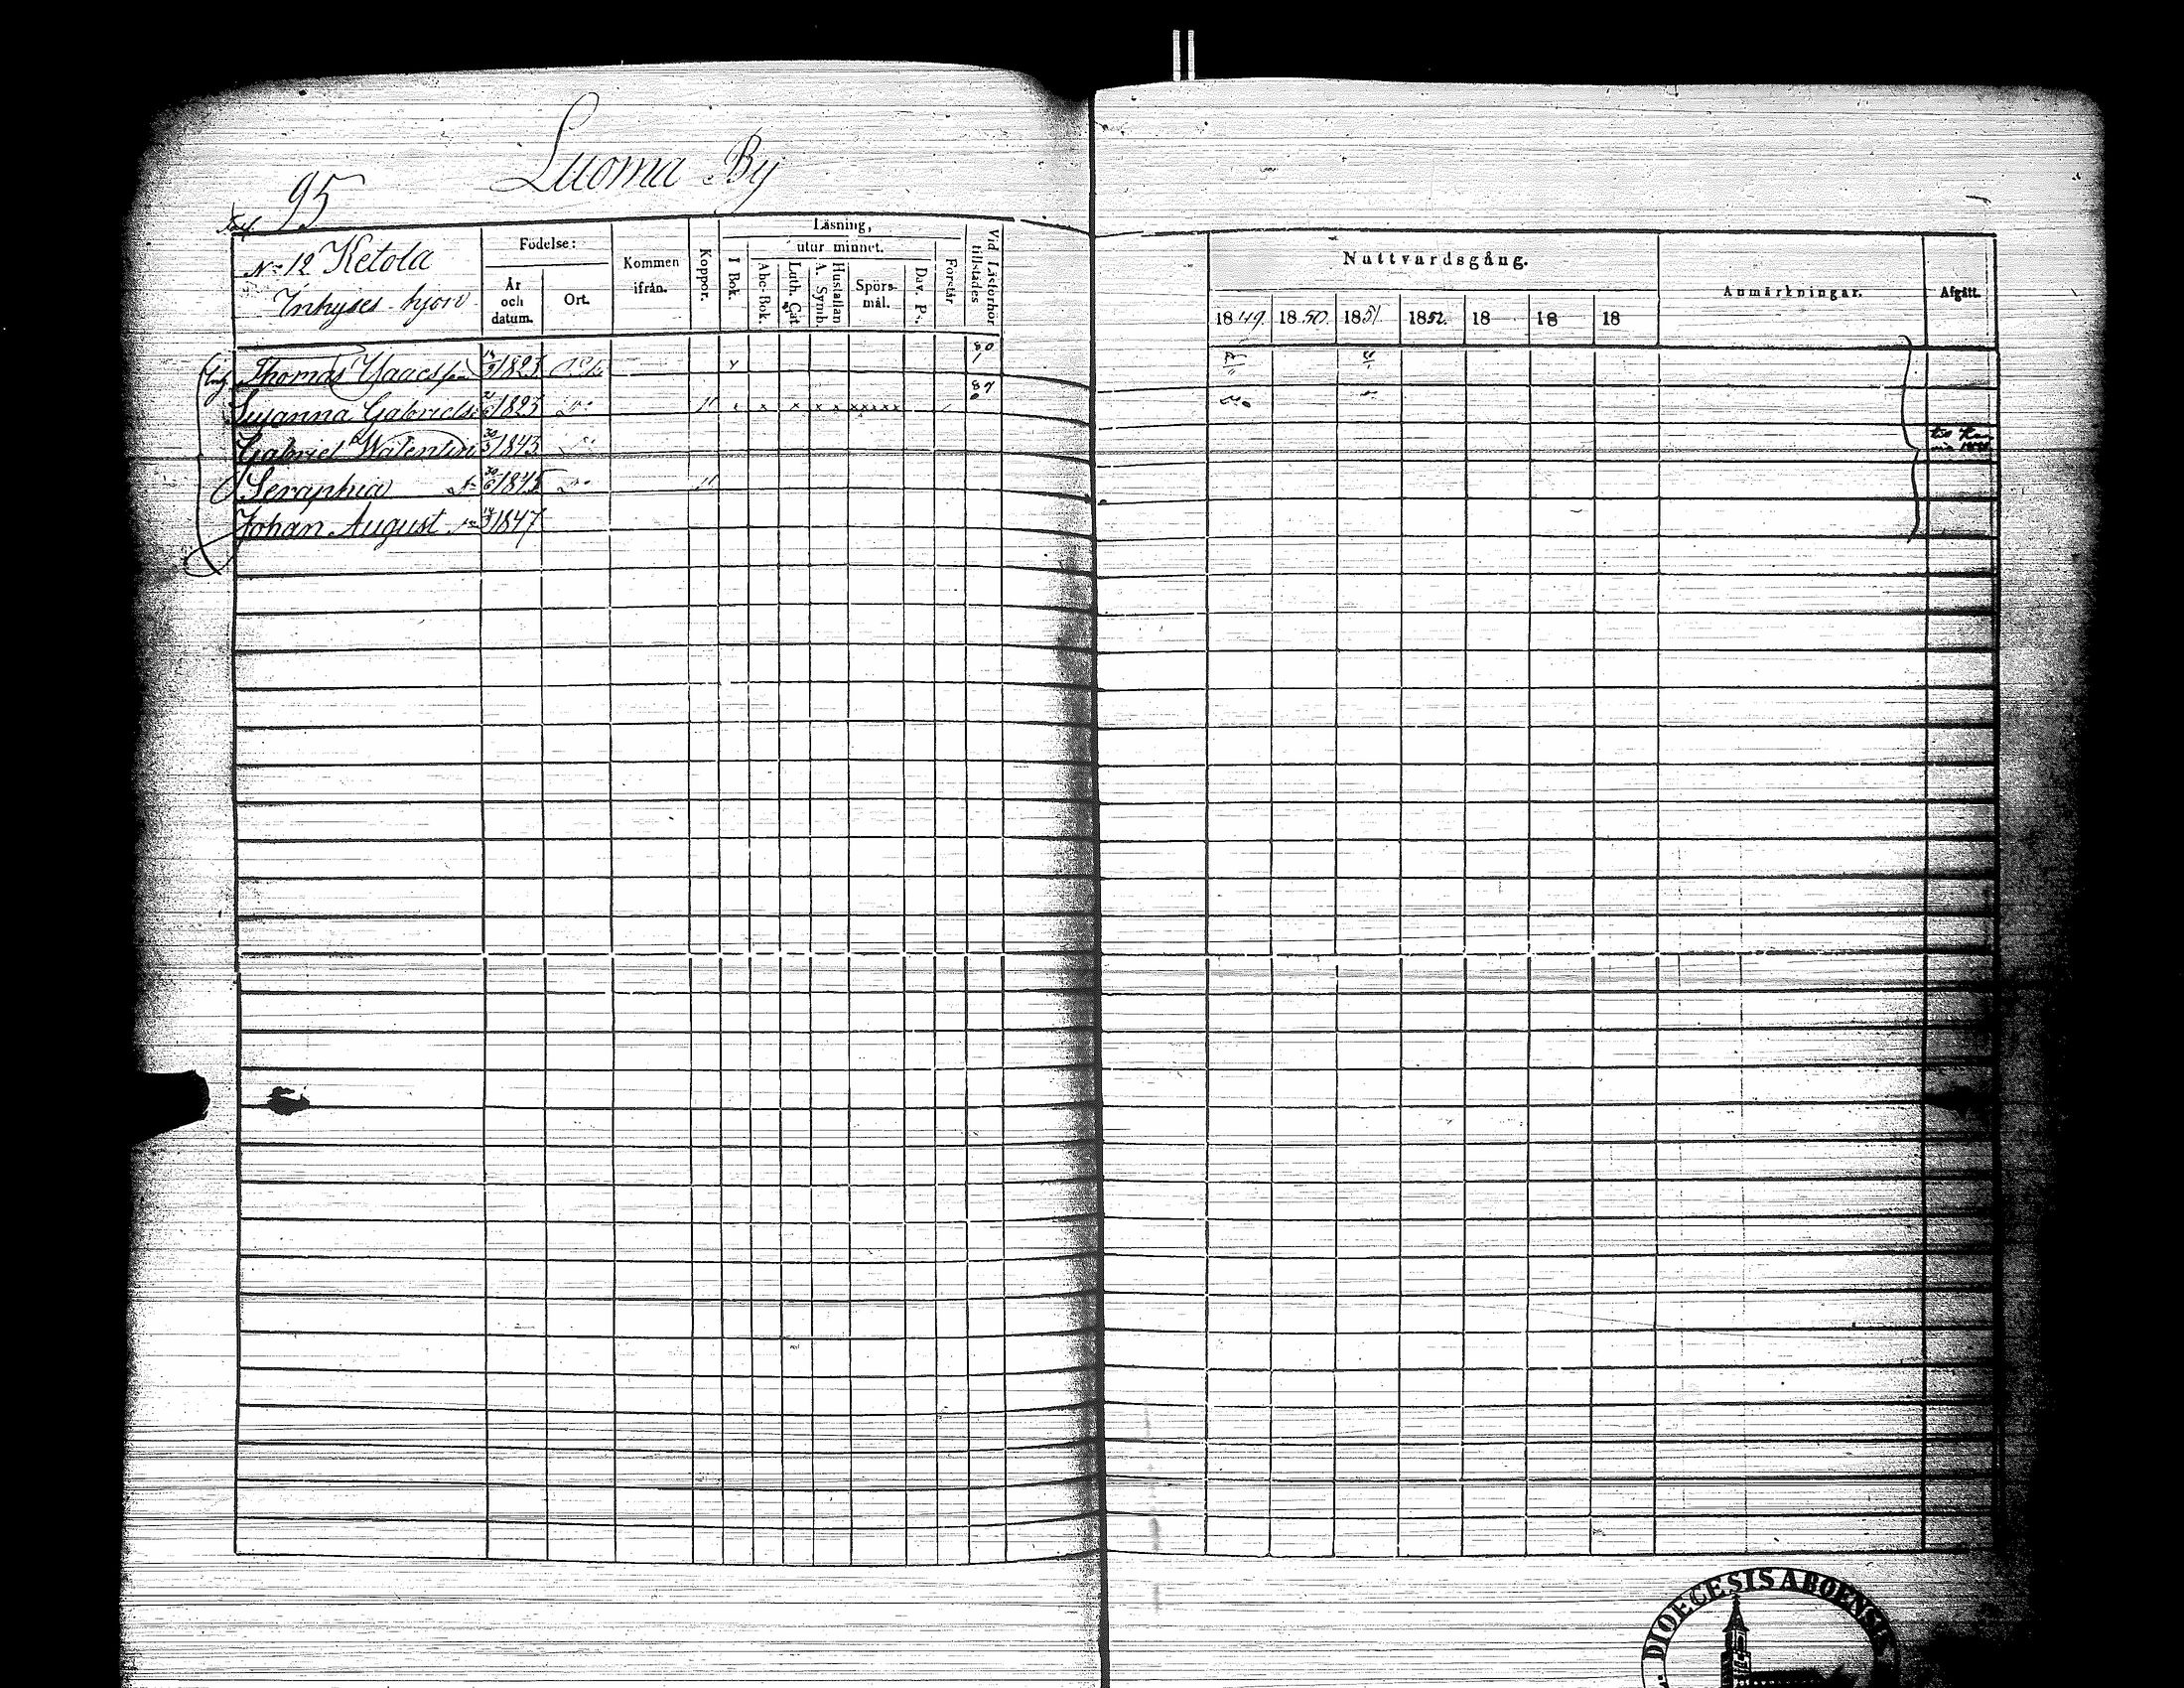 95 Luoma By
No 12 Ketola
Inhyses hjon
Födelse:
År och datum.
Ort.
Kommen ifrån.
Koppor.
Läsning,
utur minnet.
I Bok.
Abc-Bok.
Luth. Cat.
A. Symb.
Hustaflan
Spörsmål.
Dav. Ps.
Förstår
Vid Läsförhör tillstädes
Nattvardsgång.
1849. 1850. 1851. 1852. 18 18 18
Anmärkningar.
Afgått.
Thomas Isaacsson 1823
Susanna Gabrielsd 1823 Do
Gabriel Walentin 1843
Seraphia 1845 Do
Johan August 1847
DIOECESIS ABOENSIS